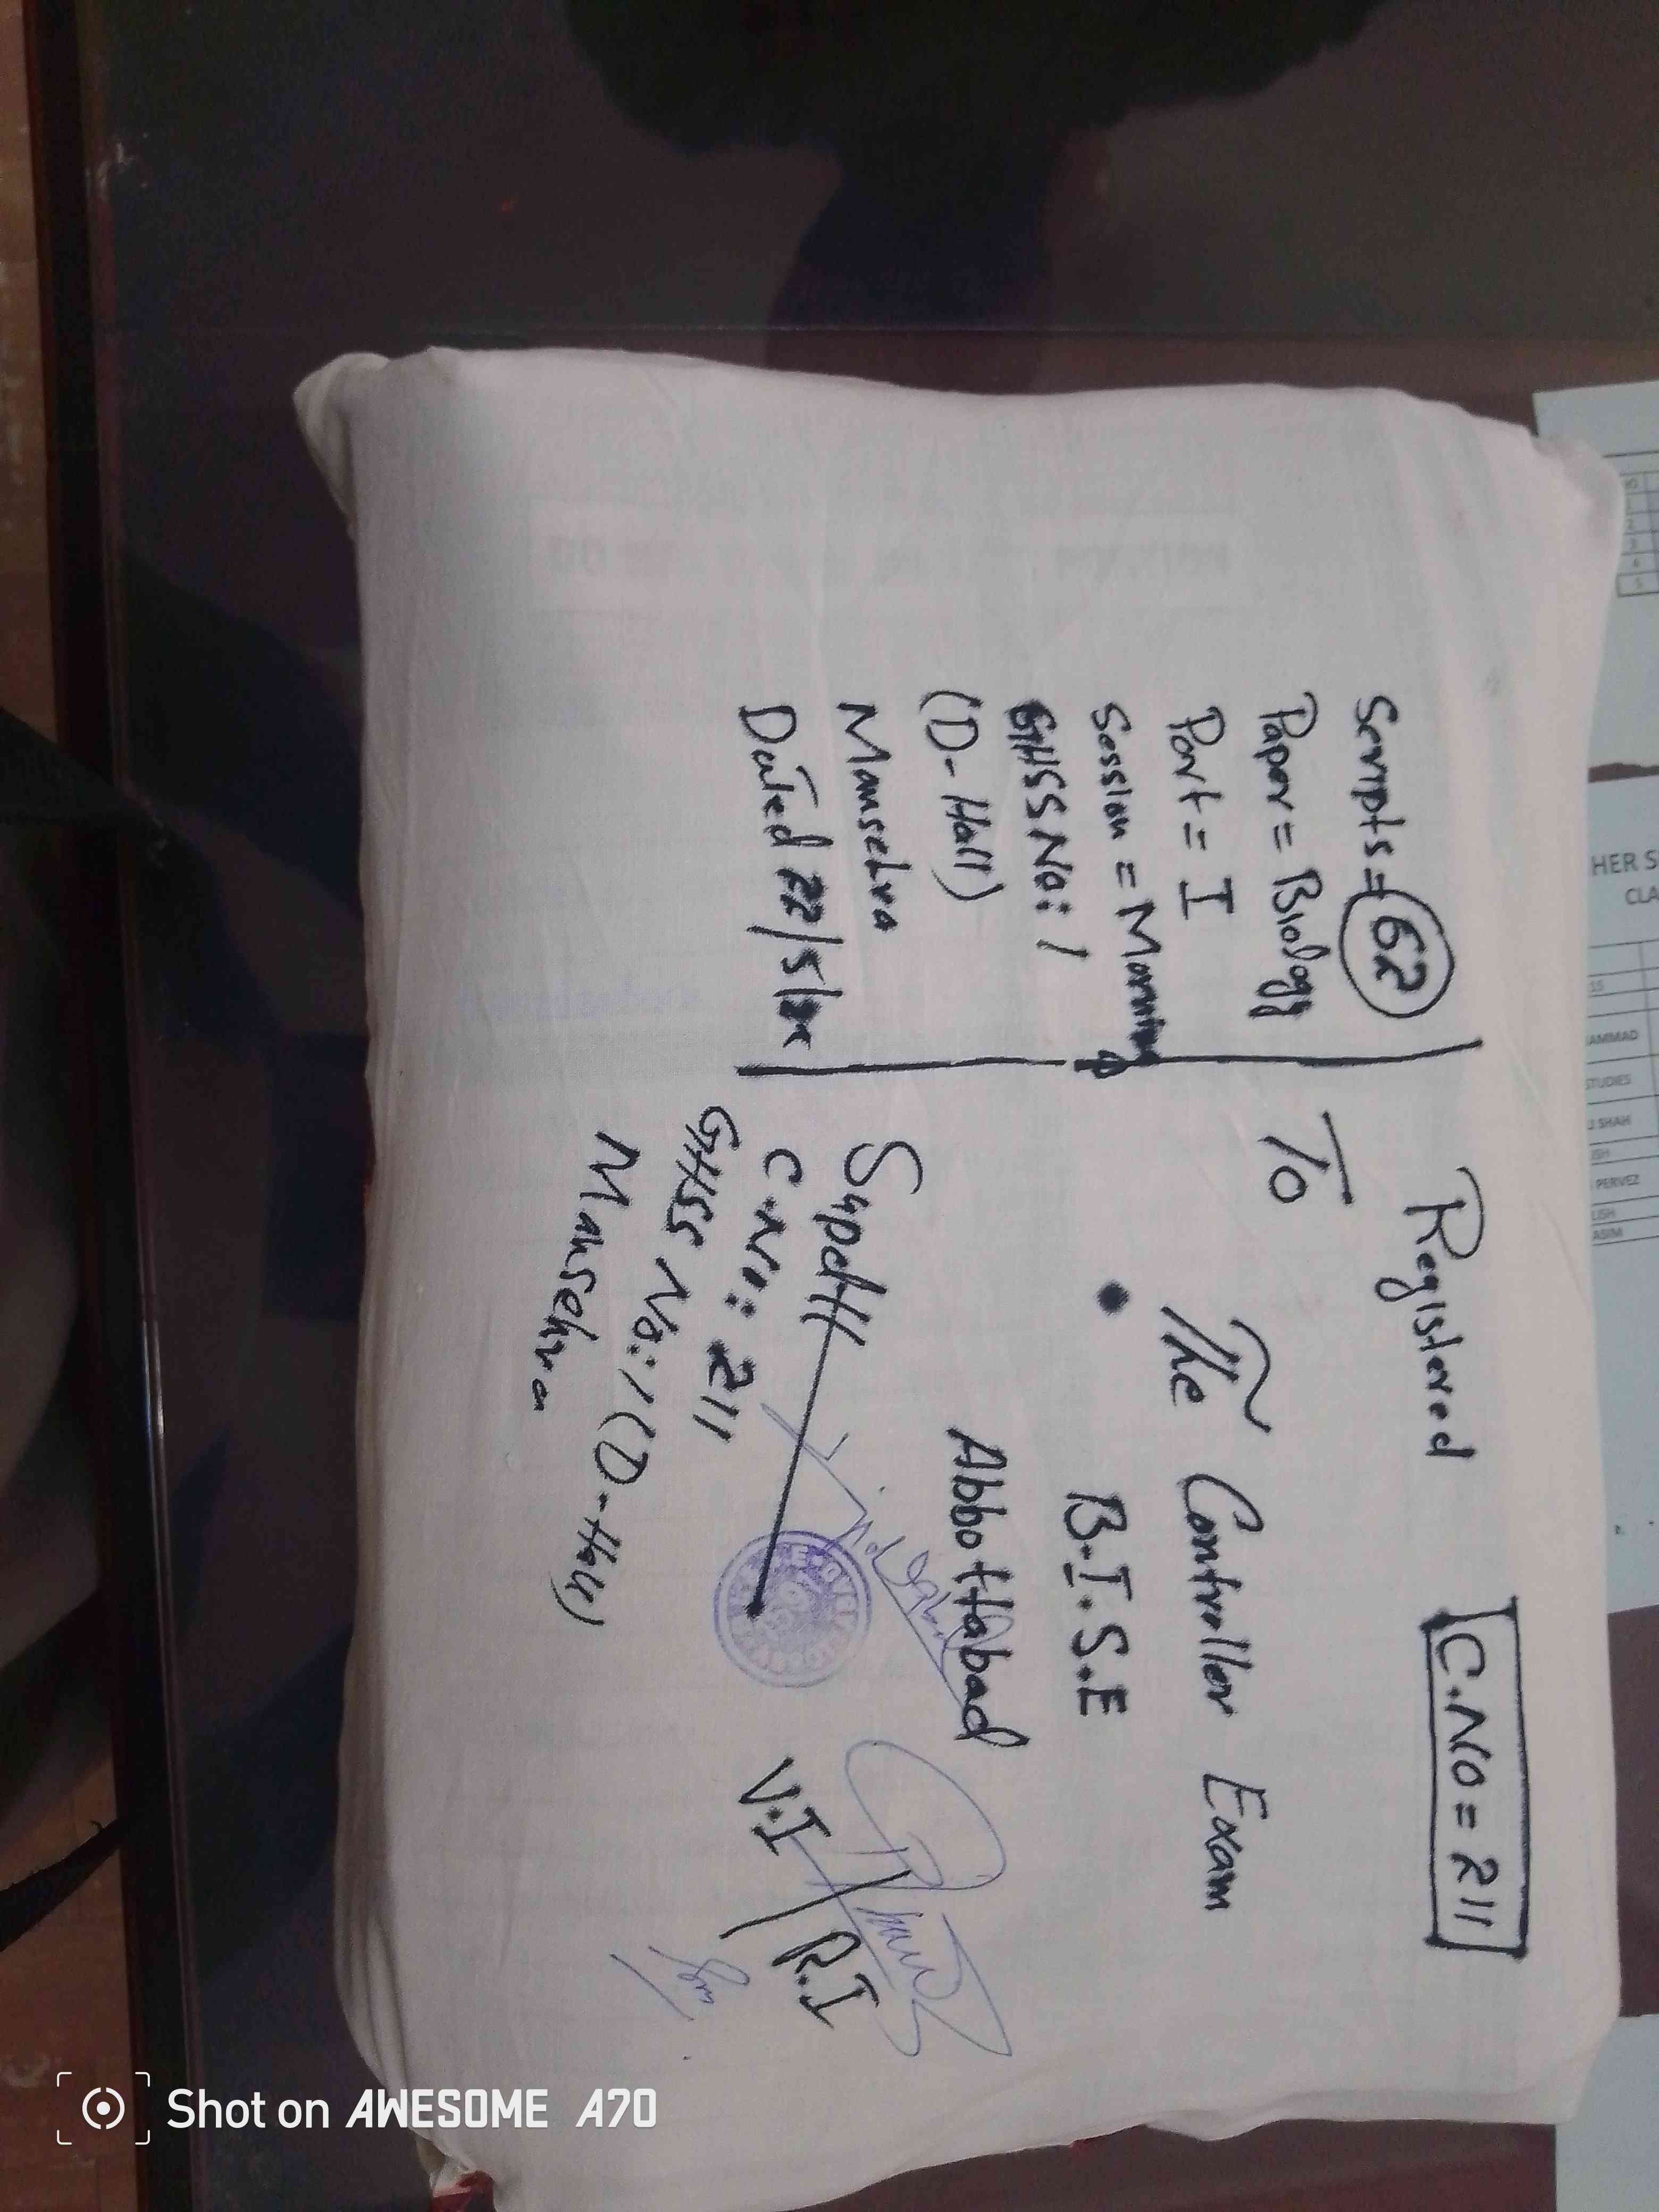 Registered
C.NO = 211
Scripts = 62
Paper = Biology
Part = I
Session = Morning
GHSS No: 1
(D-Hall)
Mansehra
Dated 22/5/
To
The Controller Exam
B.I.S.E
Abbottabad
Supdtt
C.No: 211
GHSS No: 1 (D-Hall)
Mansehra
V.I / R.I
HER S
CLA
AMMAD
STUDIES
SHAH
PERVEZ
LISH
ASIM
Shot on AWESOME A70